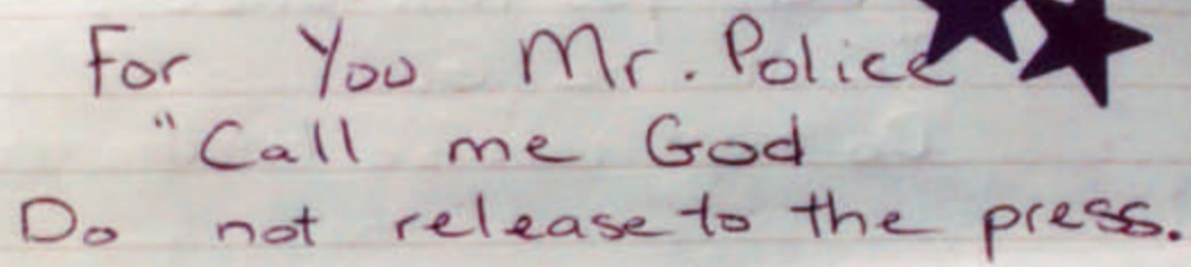 For You Mr. Police
"Call me God
Do not release to the press.